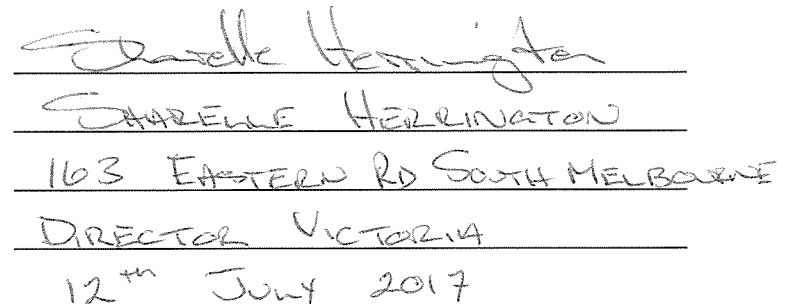 Sharelle Herrington
SHARELLE HERRINGTON
163 EASTERN RD SOUTH MELBOURNE
DIRECTOR VICTORIA
12th JULY 2017